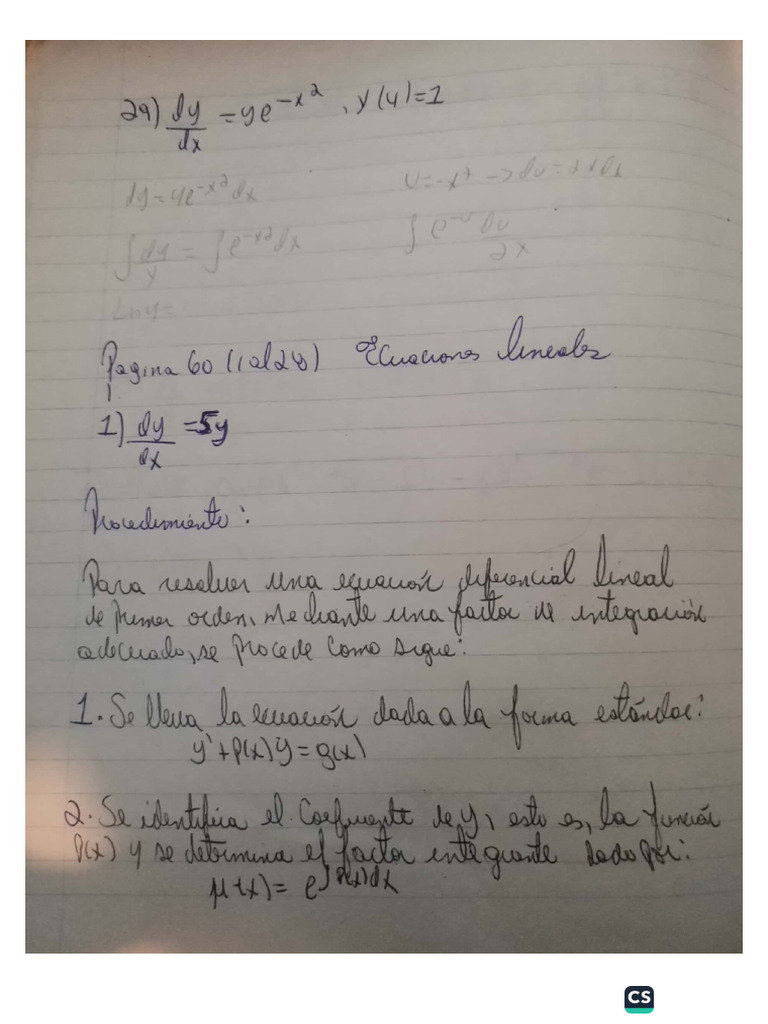 29) dy/dx = ye^{-x^2}, y(4)=1
dy = ye^{-x^2}dx
u=-x^2 -> du=2xdx
∫dy/y = ∫e^{-x^2}dx
∫e^{-u} du/2x
Lny=
Pagina 60 (1 al 28) Ecuaciones lineales
1) dy/dx =5y
Procedimiento:
Para resolver una ecuación diferencial lineal
de primer orden, mediante una factor de integración
adecuado, se procede como sigue:
1. Se lleva la ecuación dada a la forma estándar:
y'+P(x)y=g(x)
2. Se identifica el coeficiente de y, esto es, la función
P(x) y se determina el factor integrante dado por:
μ(x)= e^{∫P(x)dx}
CS